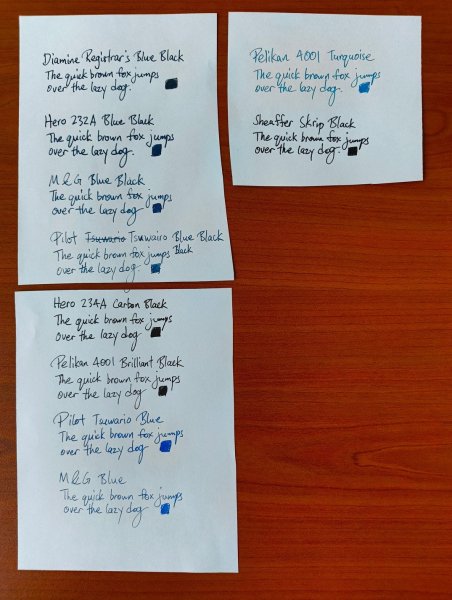 Diamine Registrar's Blue Black
The quick brown fox jumps
over the lazy dog.
Hero 232A Blue Black
The quick brown fox jumps
over the lazy dog.
M&G Blue Black
The quick brown fox jumps
over the lazy dog
Pilot Tsuwario Tsuwairo Blue Black
The quick brown fox jumps Black
over the lazy dog
Hero 234A Carbon Black
The quick brown fox jumps
over the lazy dog.
Pelikan 4001 Brilliant Black
The quick brown fox jumps
over the lazy dog
Pilot Tsuwario Blue
The quick brown fox jumps
over the lazy dog
M&G Blue
The quick brown fox jumps
over the lazy dog
Pelikan 4001 Turquoise
The quick brown fox jumps
over the lazy dog.
Sheaffer Skrip Black
The quick brown fox jumps
over the lazy dog.